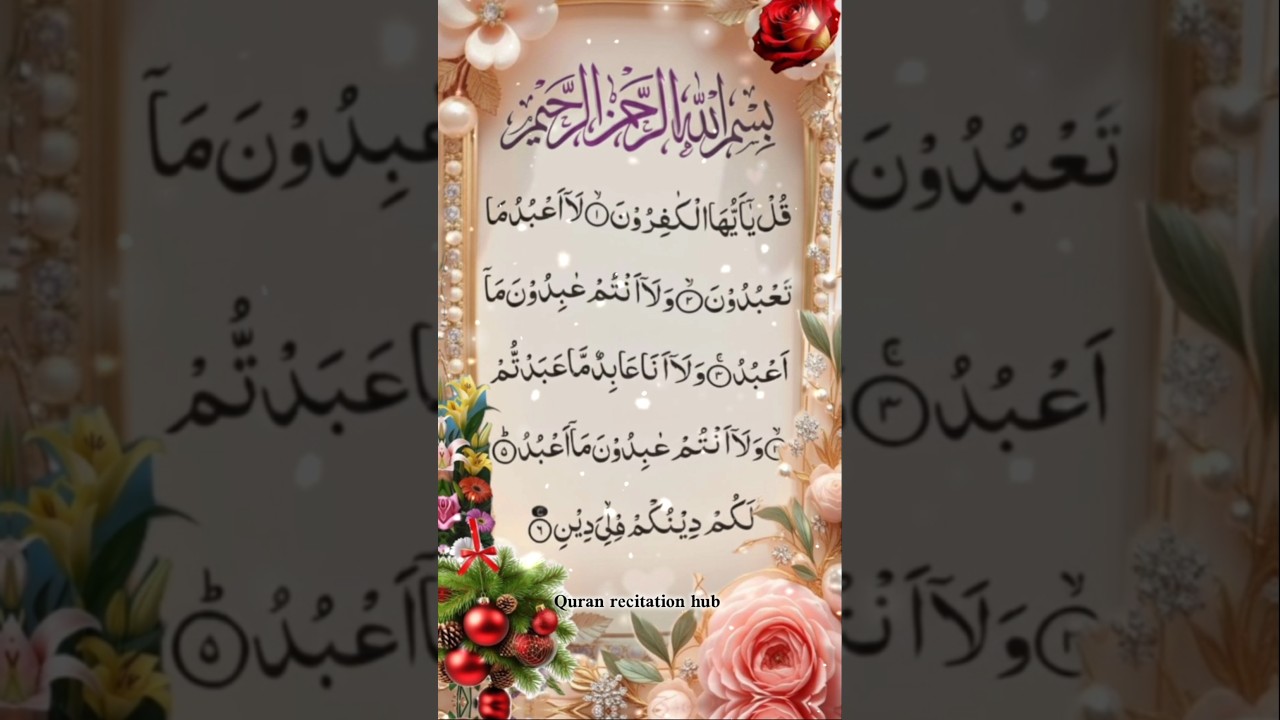 بِسْمِ اللّٰهِ الرَّحْمٰنِ الرَّحِيْمِ
قُلْ يٰٓاَيُّهَا الْكٰفِرُوْنَ ۙ﴿۱﴾ لَاۤ اَعْبُدُ مَا
تَعْبُدُوْنَ ۙ﴿۲﴾ وَلَاۤ اَنْتُمْ عٰبِدُوْنَ مَاۤ
اَعْبُدُ ۚ﴿۳﴾ وَلَاۤ اَنَا عَابِدٌ مَّا عَبَدْتُّمْ
ۙ﴿۴﴾ وَلَاۤ اَنْتُمْ عٰبِدُوْنَ مَاۤ اَعْبُدُ ؕ﴿۵﴾
لَكُمْ دِيْنُكُمْ وَلِيَ دِيْنِ ﴿۶﴾
Quran recitation hub